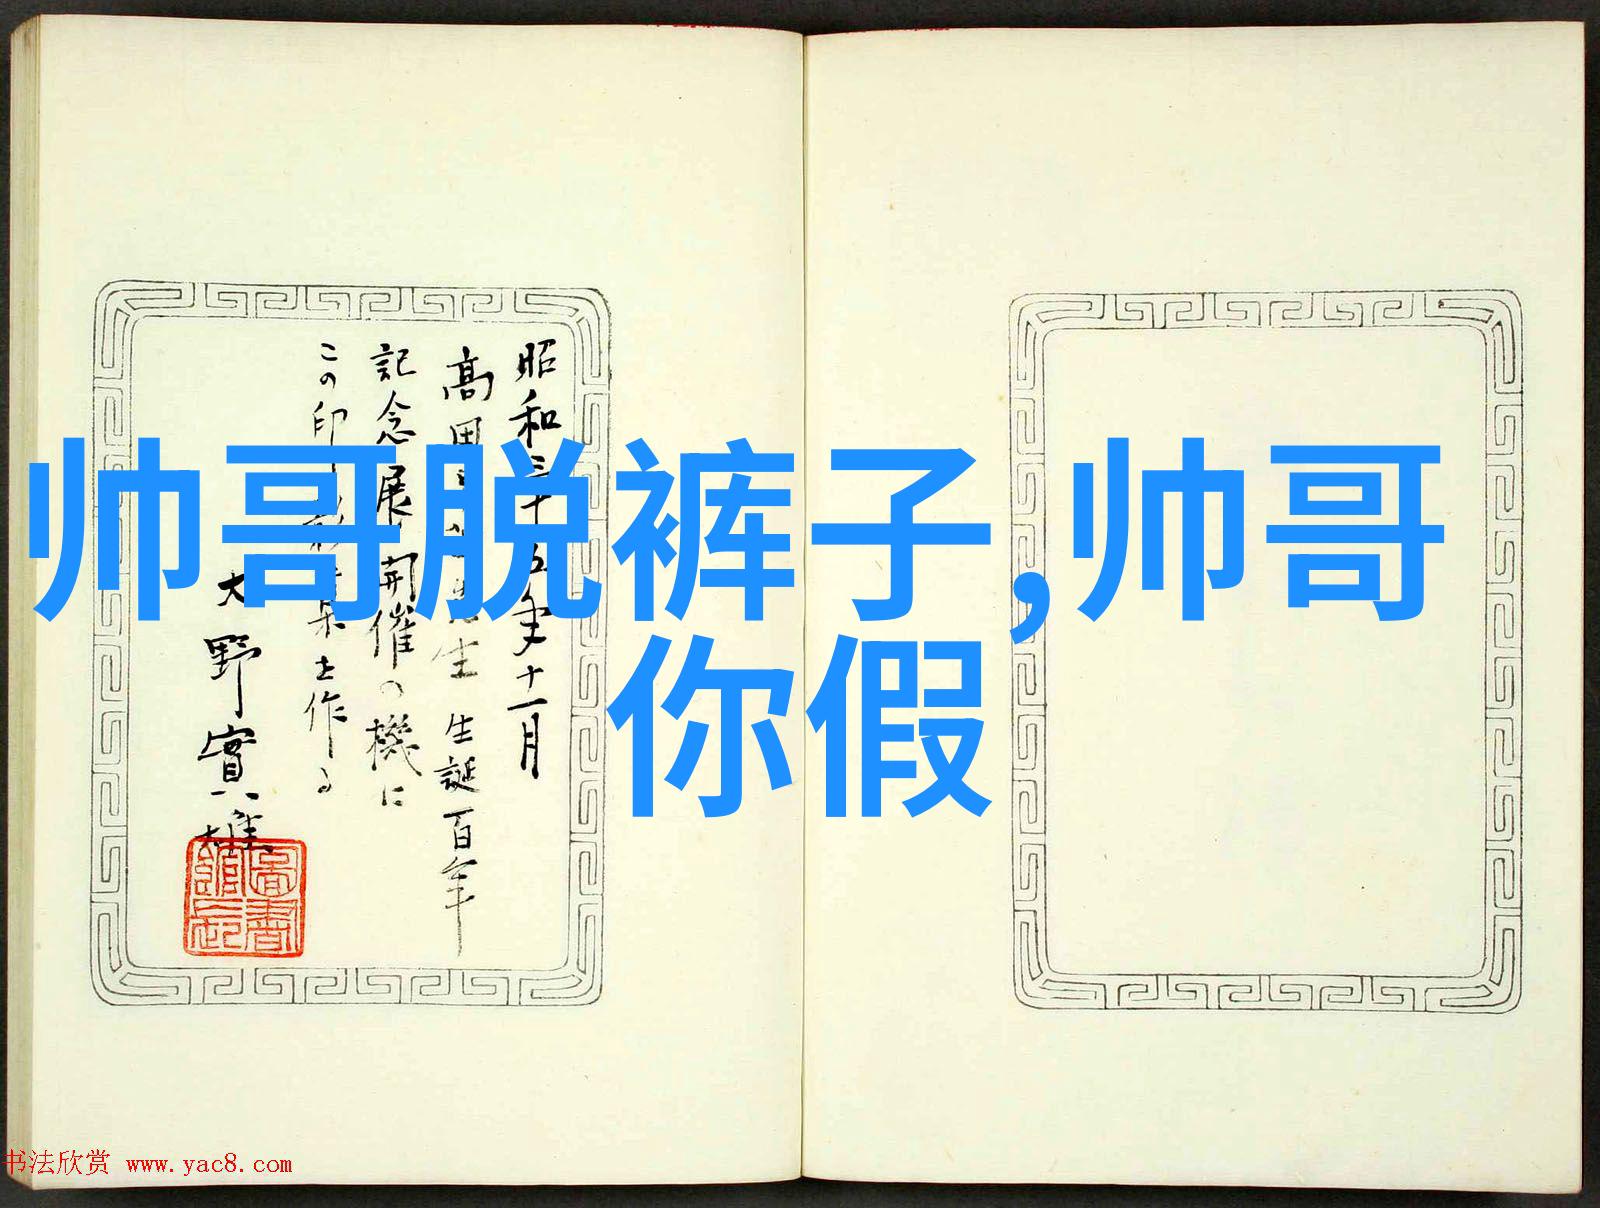 帅哥脱裤子,帅哥
你假
昭和三十五年十一月
高田
生 生誕百年
記念展開催の機に
この印
士作る
大野實雄
圖書
館長
书法欣赏 www.yac8.com